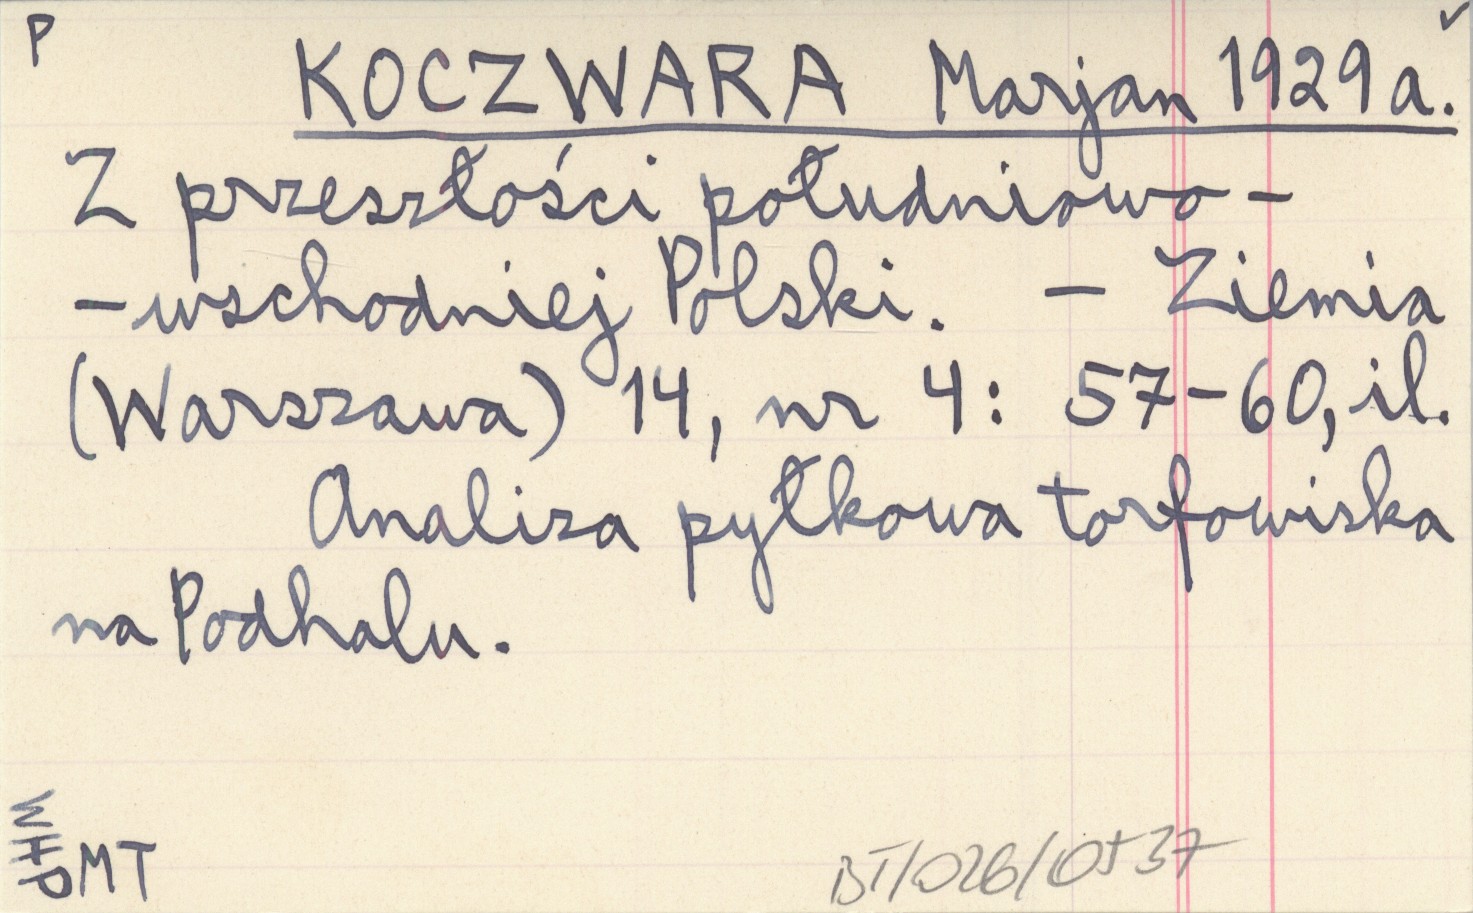 P ✓
KOCZWARA Marjan 1929a.
Z przeszłości południowo-
-wschodniej Polski. - Ziemia
(Warszawa) 14, nr 4: 57-60, il.
Analiza pyłkowa torfowiska
na Podhalu.
WHP
MT
BT/026/0537